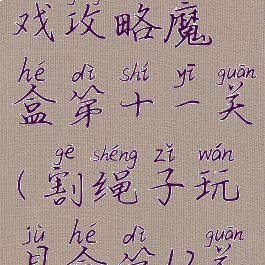 戏攻略魔
hé dì shí yī guān
盒第十一关
gē shéng zǐ wán
(割绳子玩
jù hé dì guān
具盒第12关